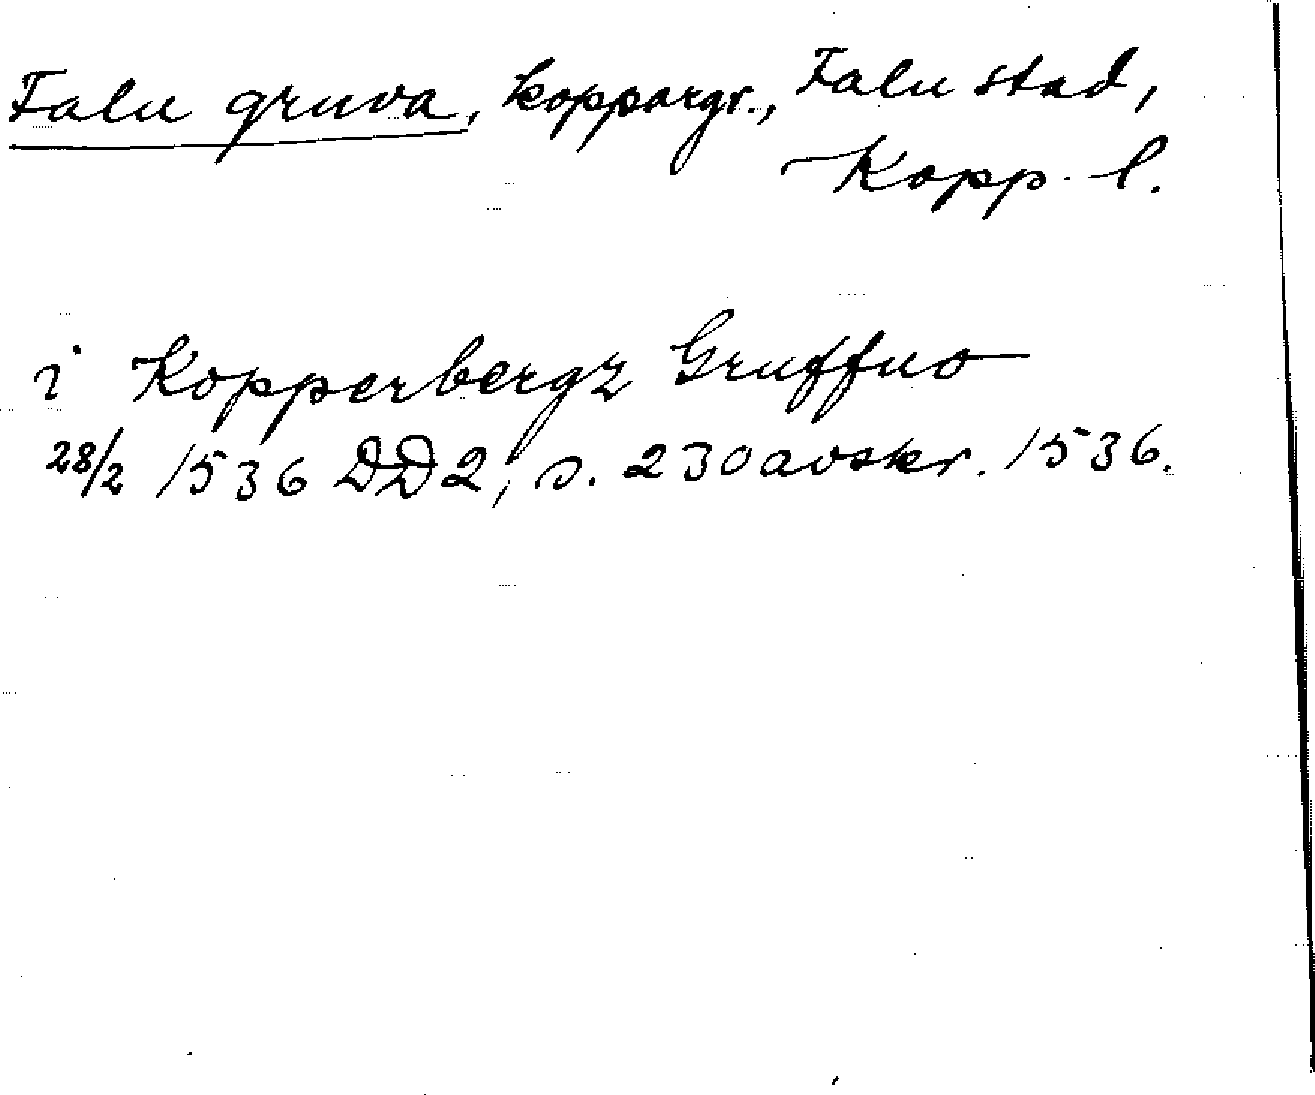 Falu gruva, koppargr., Falu stad,
Kopp. l.
i Kopperbergz Gruffuo
28/2 1536 DD2, s. 230 avskr. 1536.